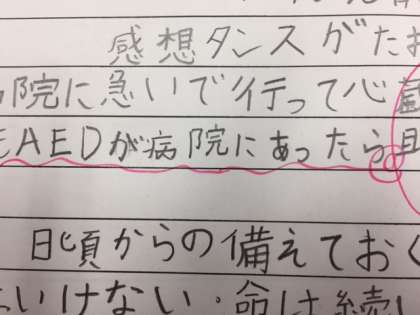 感想タンスがたお
病院に急いで行って心蔵
AEDが病院にあったら
日頃からの備えておく
いけない.命は続